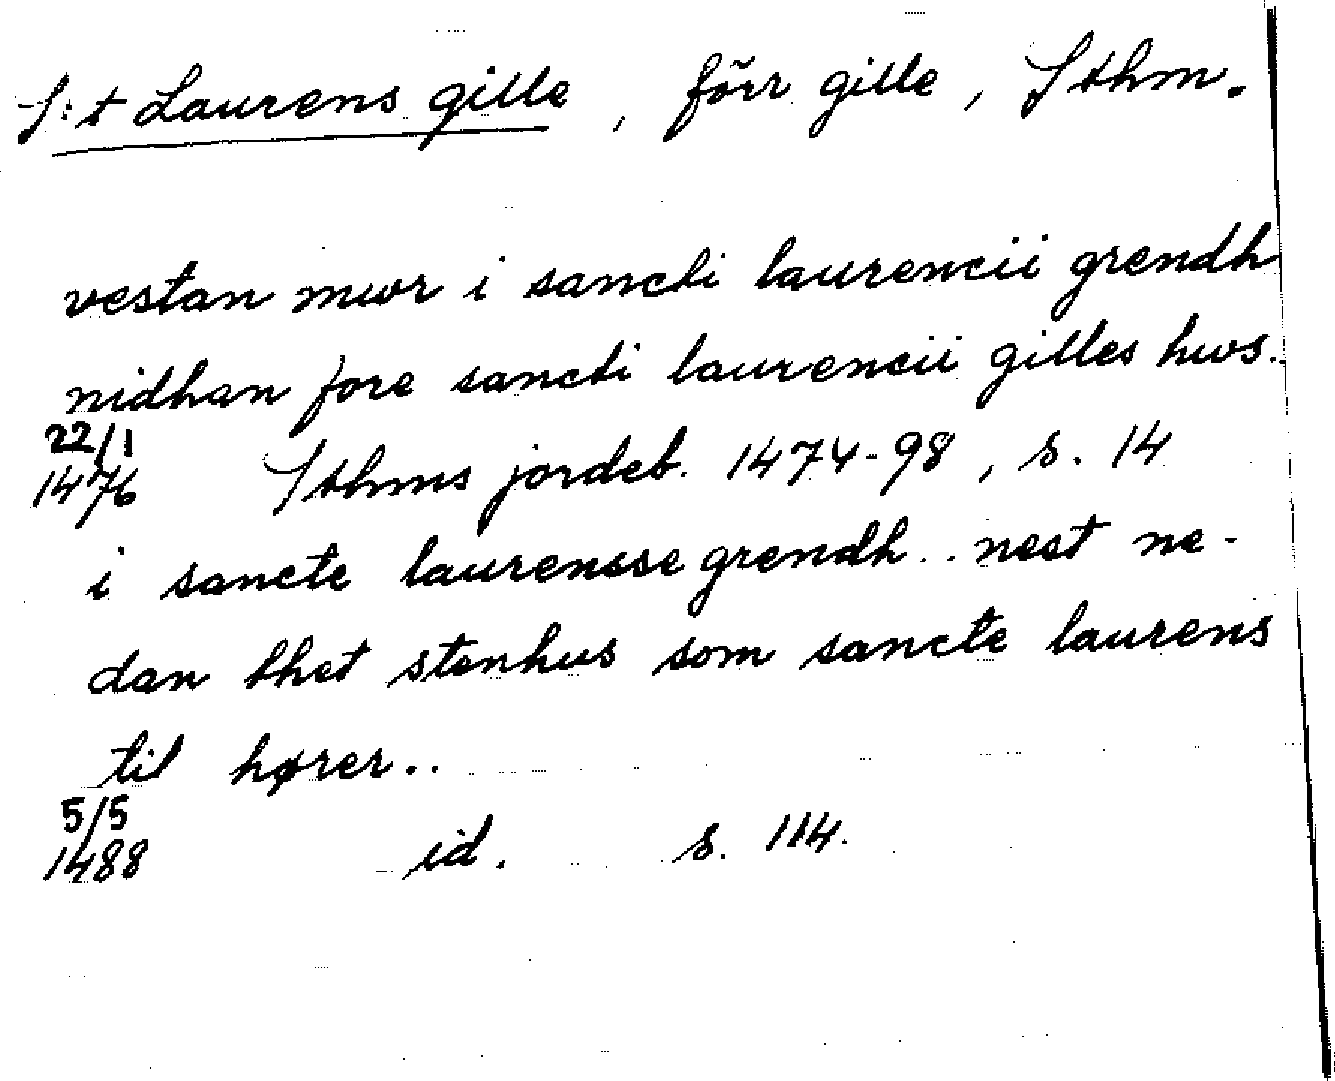 S:t Laurens gille, förr gille, Sthm.
vestan mwr i sancti laurencii grendh
nidhan fore sancti laurencii gilles hws..
22/1
1476 Sthms jordeb. 1474-98, s. 14
i sancte laurensse grendh.. nest ne-
dan thet stenhus som sancte laurens
til hører..
5/5
1488 id. s. 114.